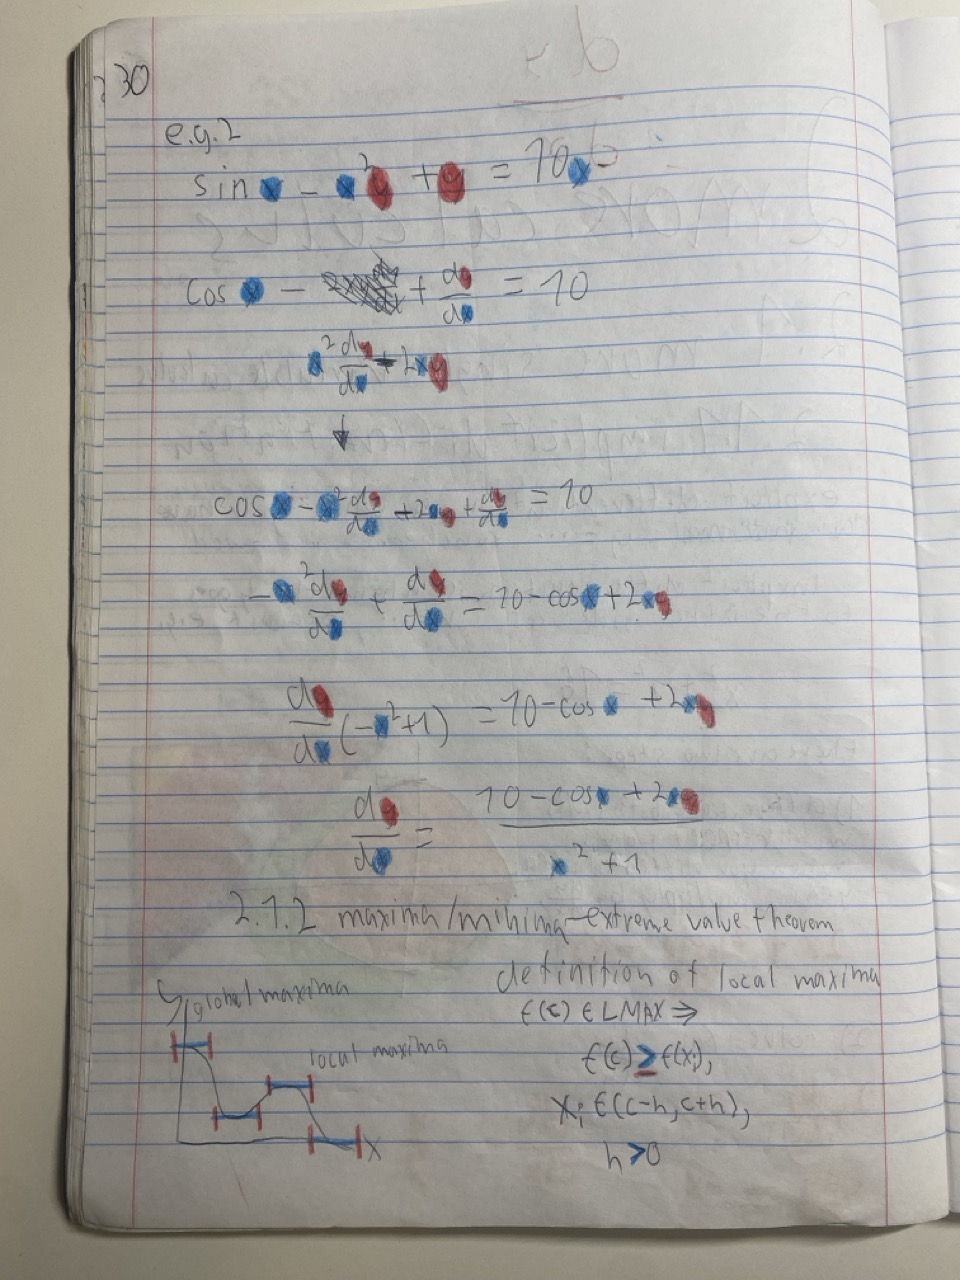 30
e.g.2
sin x - x²y + y = 10x
cos x - + dy/dx = 10
x² dy/dx + 2xy
↓
cos x - x² dy/dx + 2xy + dy/dx = 10
-x² dy/dx + dy/dx = 10 - cos x + 2xy
dy/dx (-x² + 1) = 10 - cos x + 2xy
dy/dx = (10 - cos x + 2xy) / (x² + 1)
2.1.2 maxima/minima-extreme value theorem
global maxima
local maxima
x
definition of local maxima
f(c) ∈ LMAX ⇒
f(c) ≥ f(xᵢ),
xᵢ ∈ (c-h, c+h),
h > 0